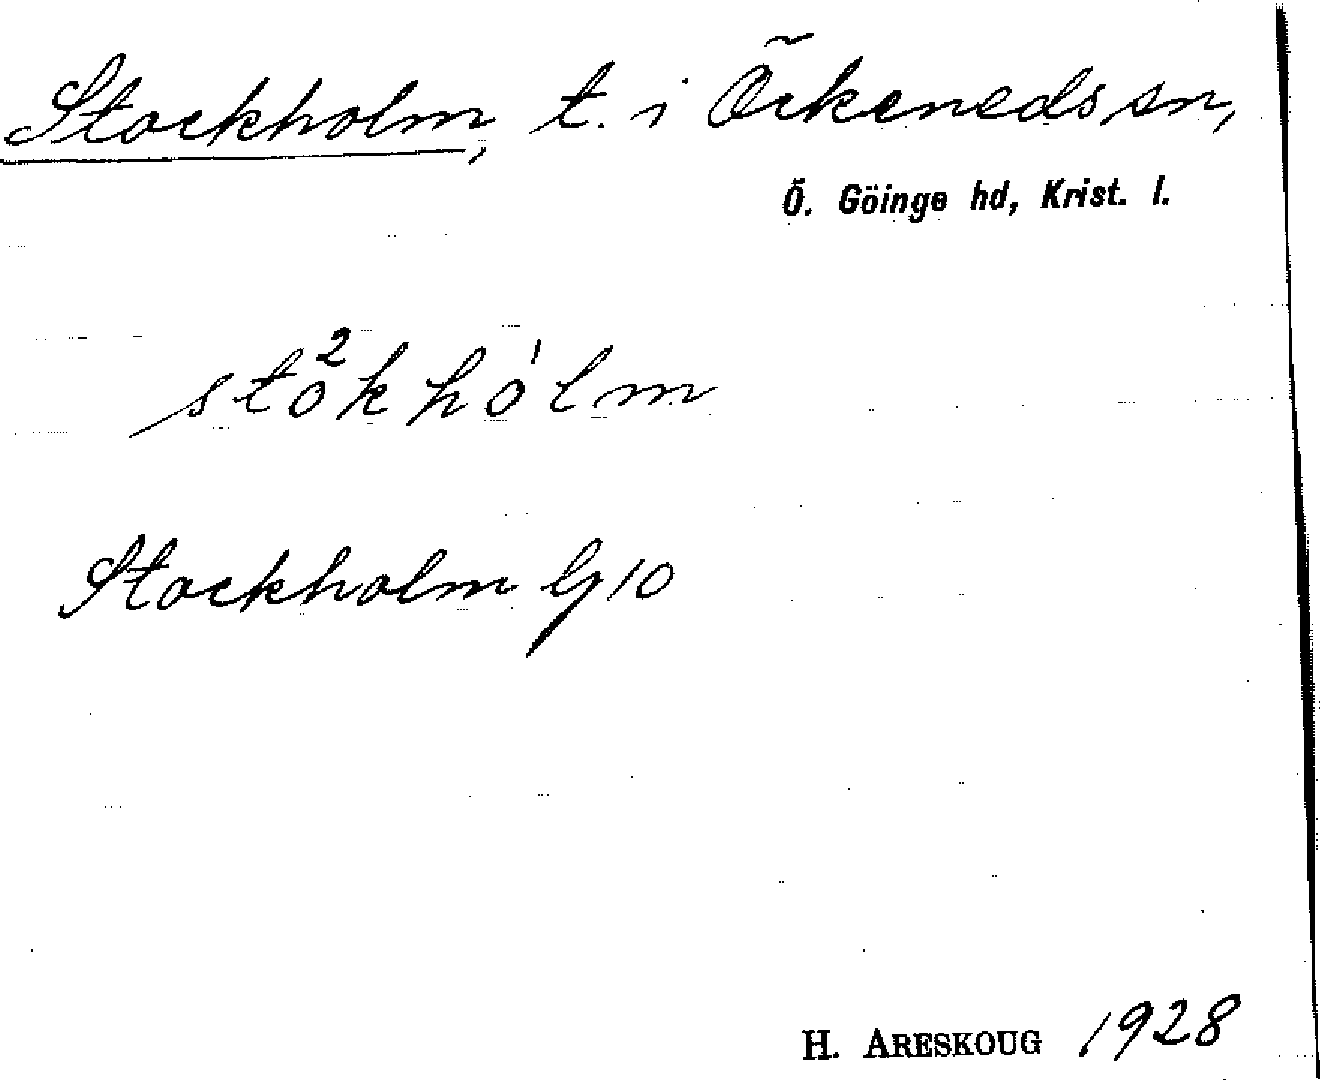 Stockholm, t. i Örkeneds sn,
Ö. Göinge hd, Krist. l.
sto²khòlm
Stockholm Gj 10
H. ARESKOUG 1928